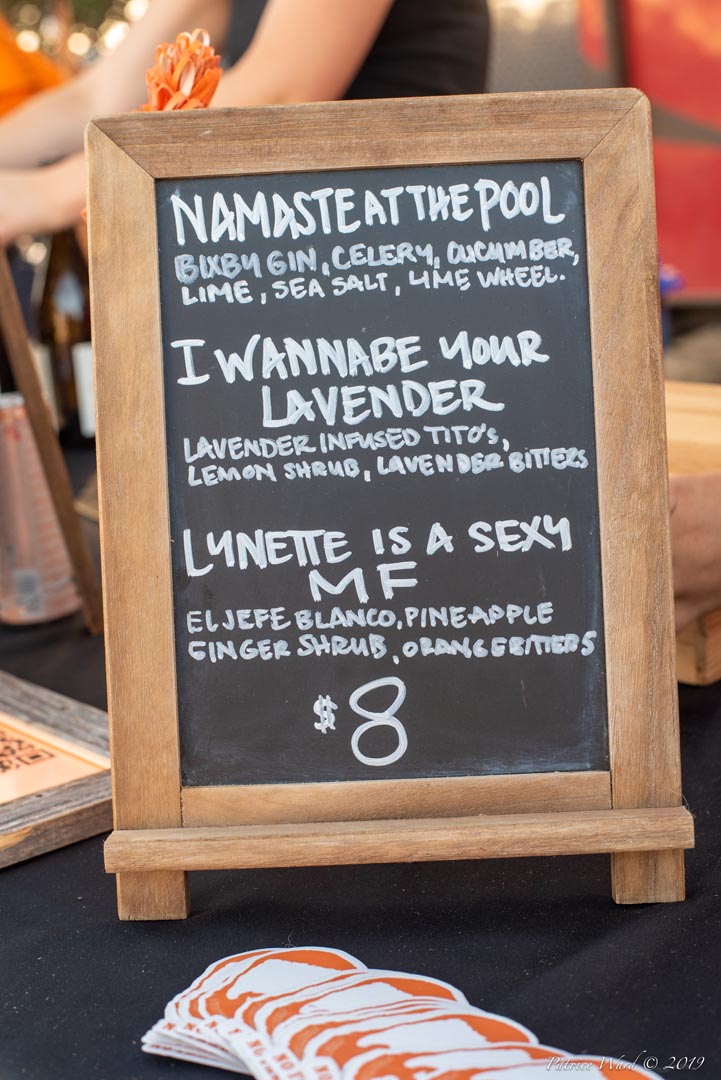 NAMASTE AT THE POOL
BIXBY GIN, CELERY, CUCUMBER,
LIME, SEA SALT, LIME WHEEL.
I WANNABE YOUR
LAVENDER
LAVENDER INFUSED TITO'S,
LEMON SHRUB, LAVENDER BITTERS
LYNETTE IS A SEXY
MF
EL JEFE BLANCO, PINEAPPLE
GINGER SHRUB, ORANGE BITTERS
$8
Patrice Ward © 2019